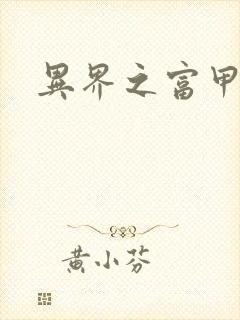 異界之富甲
黄小芬